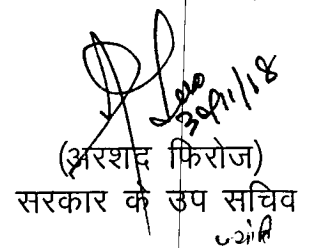 30/11/18
(अरशद फिरोज)
सरकार के उप सचिव